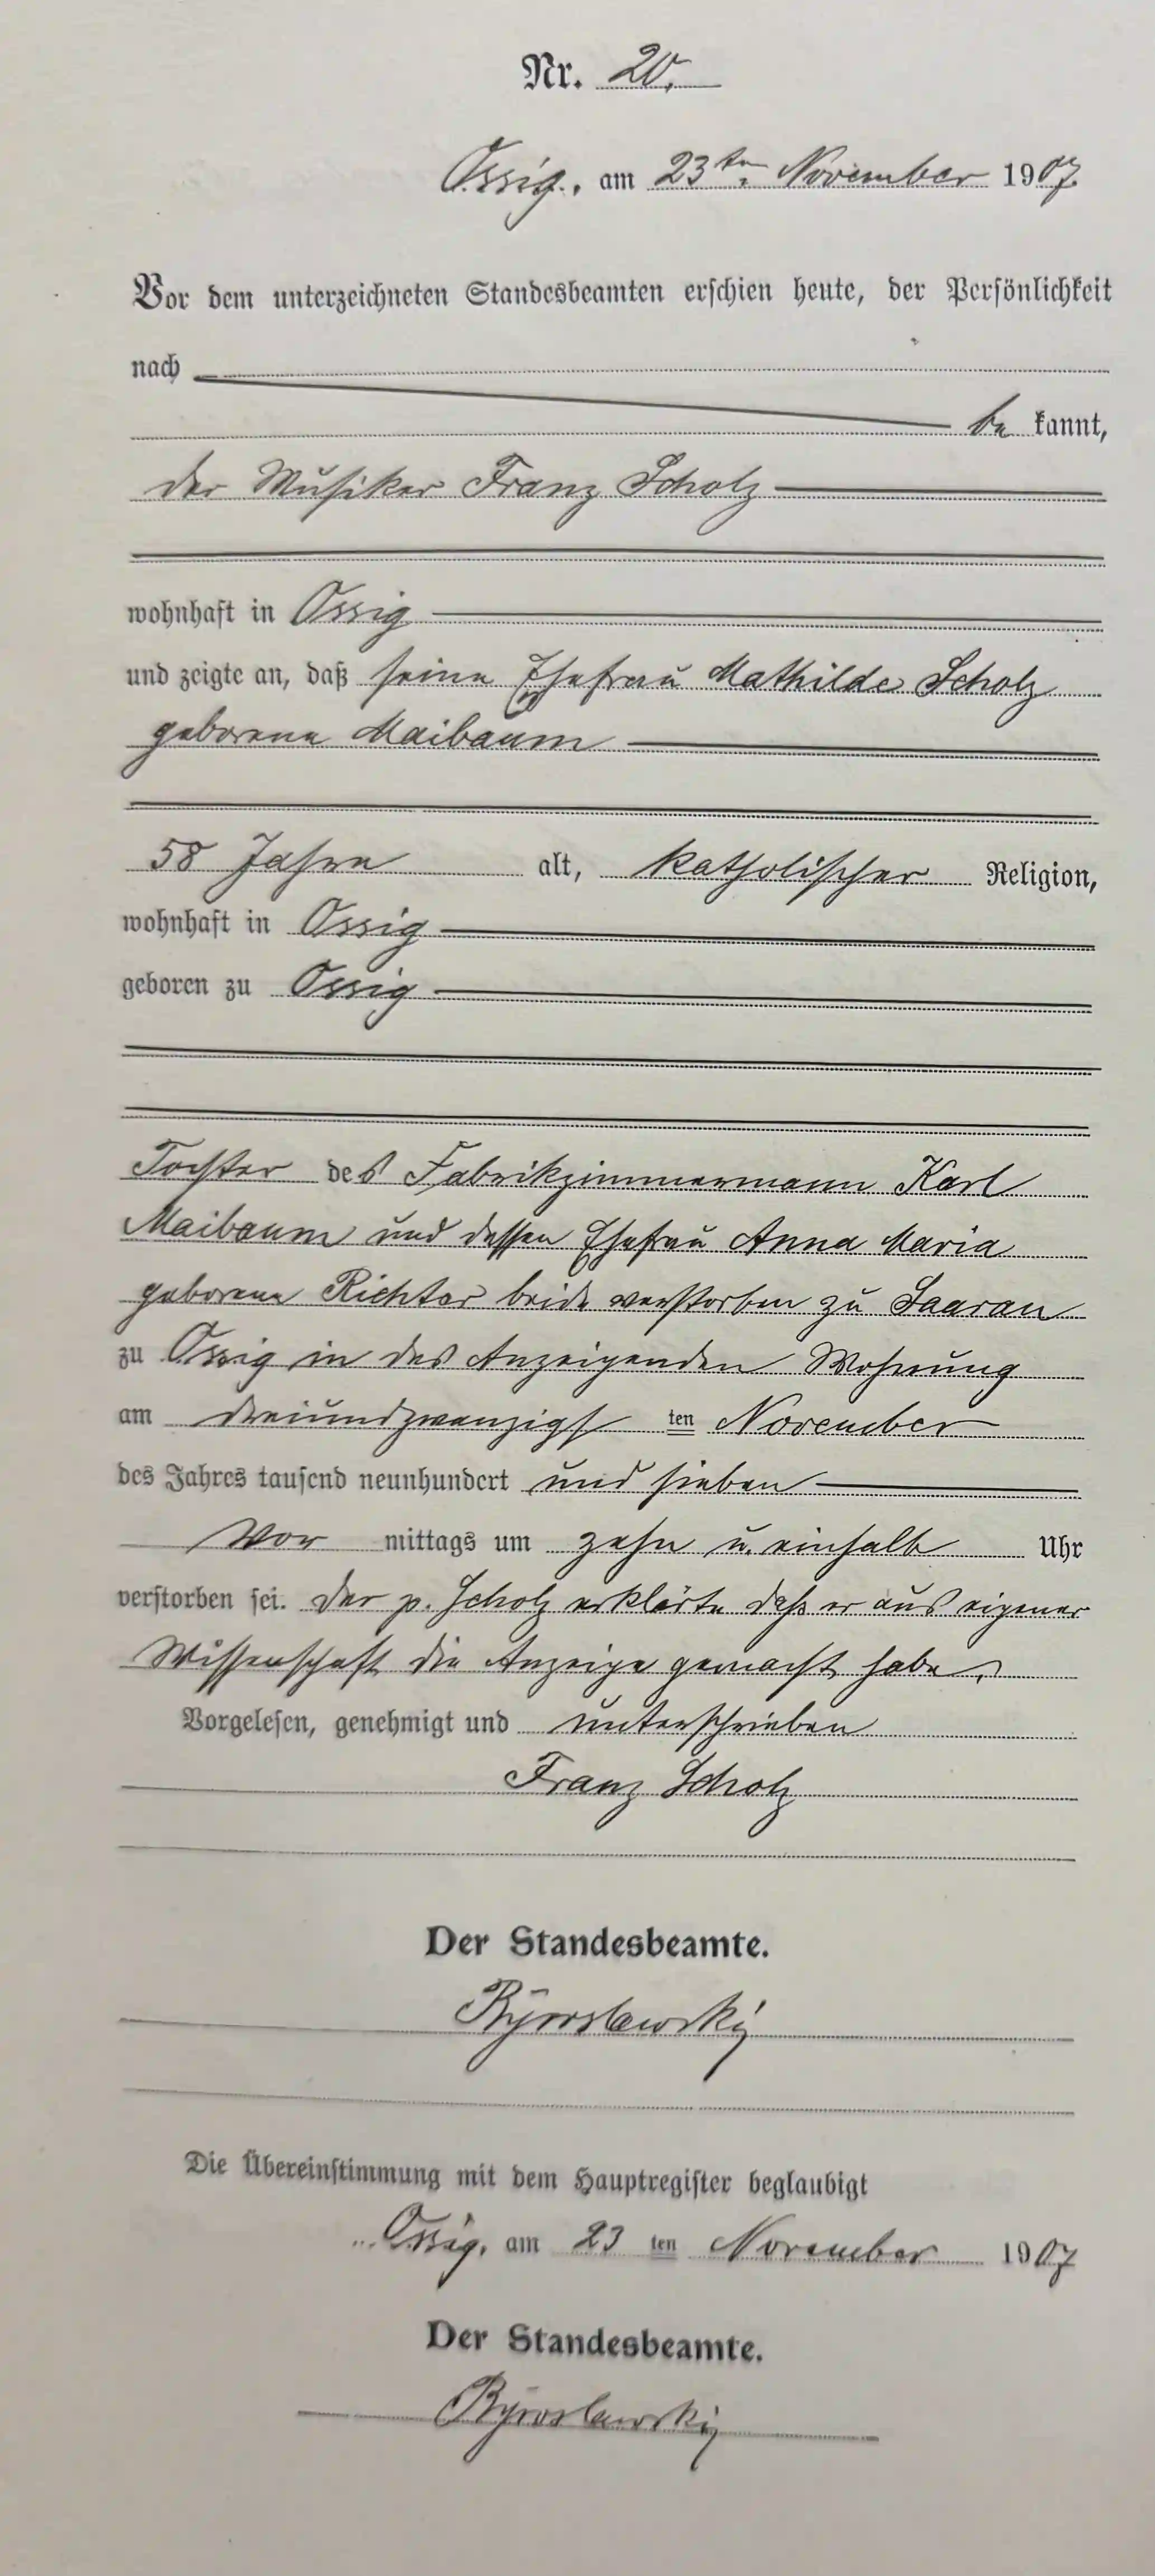 Nr. 20.
Ossig, am 23ten November 1907.
Vor dem unterzeichneten Standesbeamten erschien heute, der Persönlichkeit
nach
be kannt,
der Musiker Franz Scholz
wohnhaft in Ossig
und zeigte an, daß seine Ehefrau Mathilde Scholz
geborene Maibaum
58 Jahre alt, katholischer Religion,
wohnhaft in Ossig
geboren zu Ossig
Tochter des Fabrikzimmermann Karl
Maibaum und dessen Ehefrau Anna Maria
geborene Richter beide verstorben zu Saarau
zu Ossig in des Anzeigenden Wohnung
am dreiundzwanzigst ten November
des Jahres tausend neunhundert und sieben
Vor mittags um zehn u. einhalb Uhr
verstorben sei. Der p. Scholz erklärte daß er aus eigener
Wissenschaft die Anzeige gemacht habe.
Vorgelesen, genehmigt und unterschrieben
Franz Scholz
Der Standesbeamte.
Die Übereinstimmung mit dem Hauptregister beglaubigt
Ossig, am 23 ten November 1907
Der Standesbeamte.